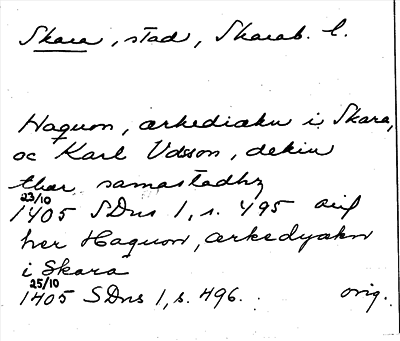 Skara, stad, Skarab. l.
Haquon, ærkediakn i Skara,
oc Karl Udsson, dekin
thær samastadhz
23/10
1405 SDns 1, s. 495 avil
her Haquon, ærkedyakn
i Skara
25/10
1405 SDns 1, s. 496. orig.